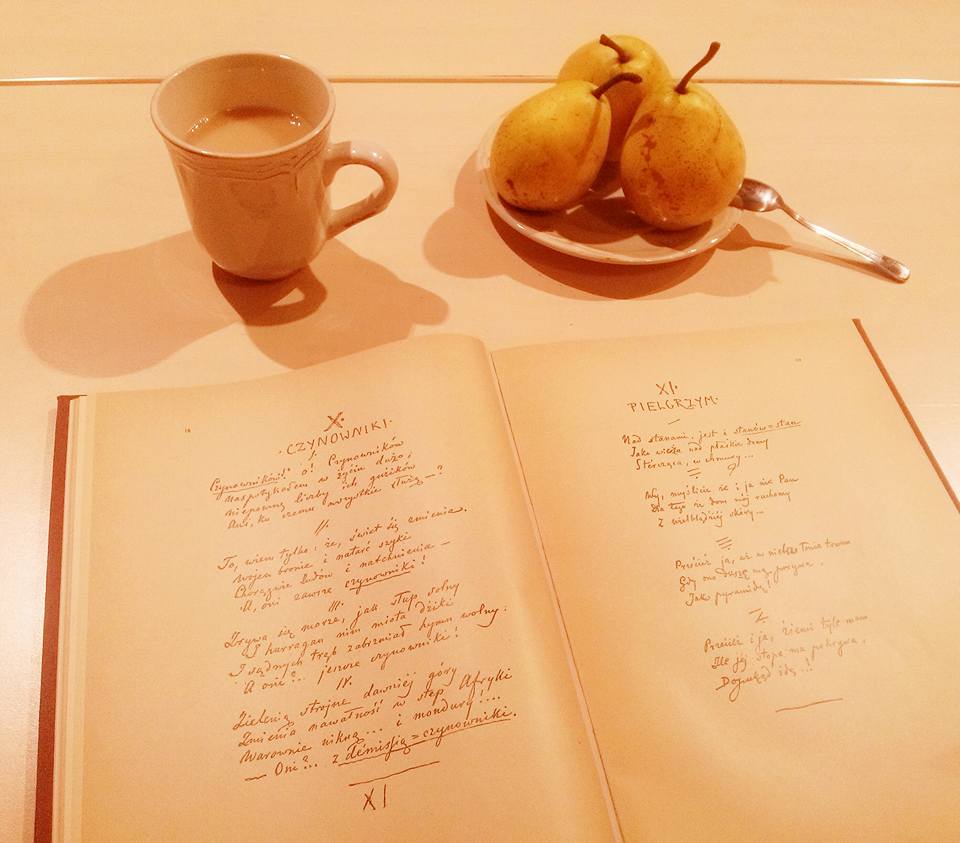 X.
CZYNOWNIKI.
I.
Czynowników! o! Czynowników
Naspotykałem w życiu dużo;
niepewną liczby ich guzików
Ani, ku czemu wszystkie służą —?
II.
To, wiem tylko: że, świat się zmienia.
Wojen bronie i natarć szyki
Chorągwie ludów i natchnienia —
A, oni zawsze czynowniki!
III.
Zrywa się morze, jak słup solny
harragan nim miota dziki
I sądnych trąb zabrzmiał hymn wolny:
A oni?.. jeszcze czynowniki!
IV.
Zielenią strojne dawniej góry
Zmienia nawałność w step Afryki
Warownie nikną... i mondury!...
— Oni?... z démissją=czynowniki.
XI
XI.
PIELGRZYM.
Nad stanami. jest i stanów=stan
Jako wieża nad płaskie domy
Stercząca, w chmury...
II
Wy, myślicie że i ja nie Pan
Dla tego że dom mój ruchomy
Z wielbłądziéj skóry...
III
Przecież ja, aż w nieba łonie trwam
Gdy ono duszę mą porywa
Jak pyramidę!
Przecież i ja, ziemi tyle mam
Ile jéj stopa ma pokrywa,
Dopokąd idę..!